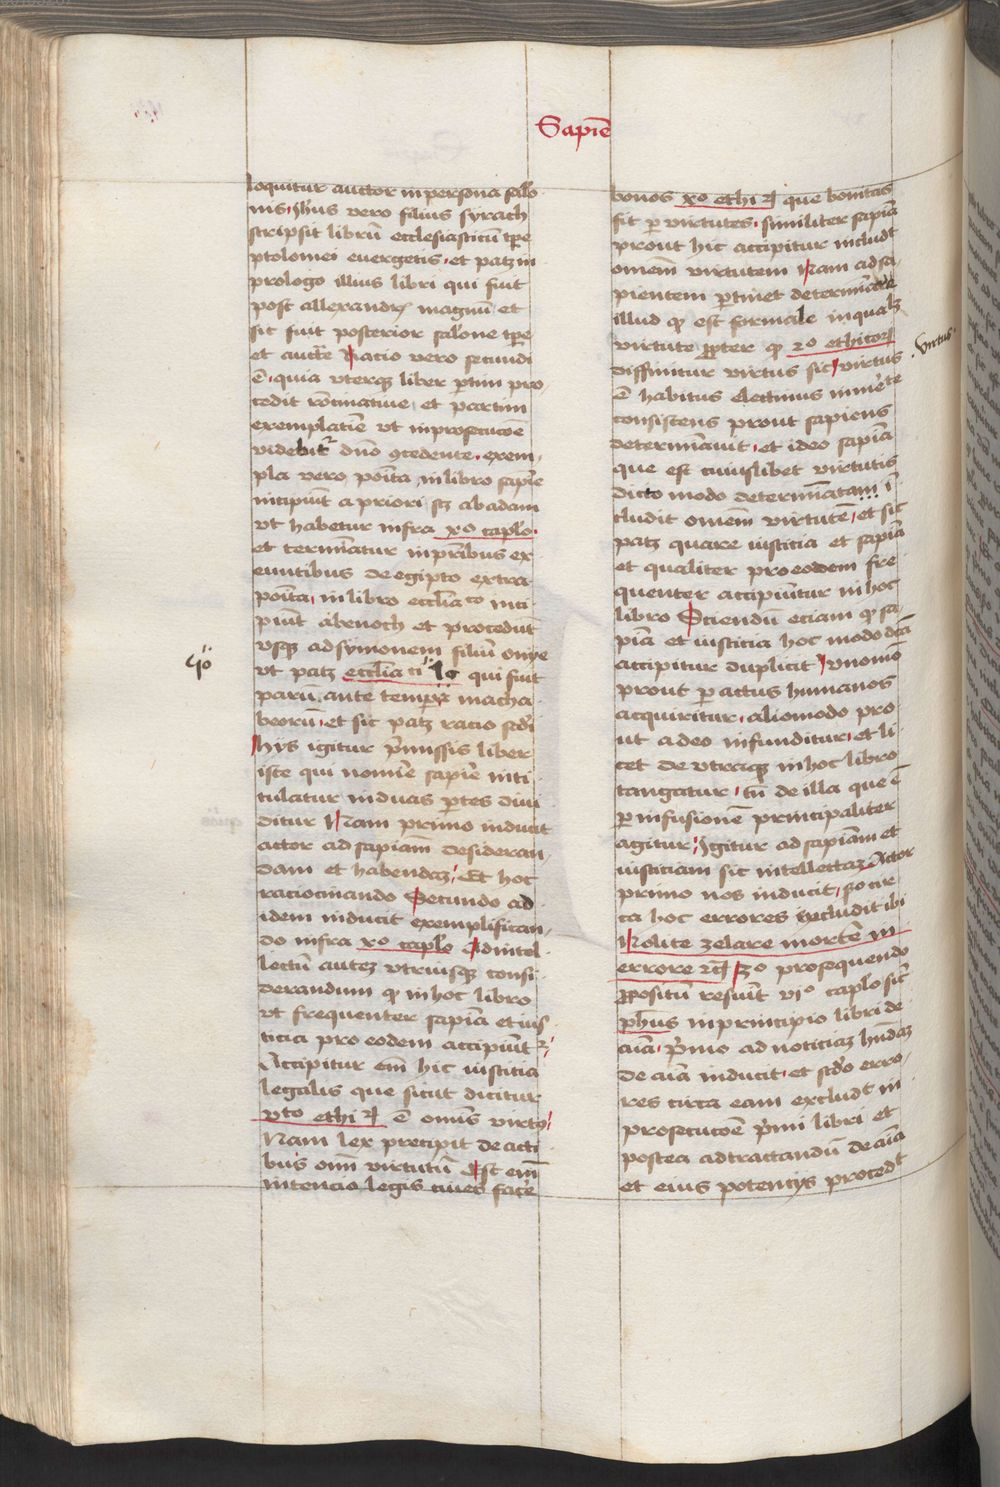 Sapiē
loquitur auctor in persona salo
nis · Jhūs vero filius syrach
scripsit librū ecclesiasticū tp̄e
ptolomei euergetis · et patꝫ in
prologo illius libri qui fuit
post allexandꝝ magnū et
sic fuit posterior salone tp̄e
et auctē Racio vero secundi
ē · quia vterqꝫ liber ꝑtim pro
cedit rōcinatiue et partim
exemplatiē vt in prosecucōe
videbitᷣ dn̄o ꝯcedente · exem
pla vero poīta in libro sapiē
incipiūt a priori sꝫ ab adam
vt habetur infra xº capl̄o ·
et termīatur in pīribus ex
euntibus de egipto extra
poīta · in libro eccl̄ia co inci
piūt ab enoch et procedūt
vsqꝫ ad symonem filiū onye
vt patꝫ eccl̄ia ci lº qui fuit
parū ante tempꝫa macha
beorū · et sic patꝫ racio scd̄i
Hys igitur p̄missis liber
iste qui nomīe sapiē inti
tulatur in duas ꝑtes diui
ditur Nam primo inducit
actor ad sapiam desideran
dam et habendaꝫ · Et hoc
raciocinando Secundo ad
idem inducit exemplifican
do infra xº capl̄o Ad intel
lectū auteꝫ vtriusqꝫ consi
derandum ꝙ in hoc libro
vt frequenter sapiā et ius
ticia pro eodem accipiūtᷣ ·
Accipitur em̄ hic iusticia
legalis que sicut dicitur
vto ethi ꝝ ē omīs virtꝰ ·
Nam lex precipit de acti
bus om̄i virtutū Est em̄
intencio legis ciues facē
bonos xº ethi ꝝ que bonitas
fit ꝑ virtutes · similiter sapiā
prout hic accipitur includt
omēm virtutem Nam ad sa
pientem ꝑtinet determīare
illud ꝙ est formale in qualꝫ
virtute ꝓpter ꝙ 2º ethicoꝝ
diffinitur virtus sic / virtus
ē habitus electiuus in mīe te
consistens prout sapiens
determīauit · et ideo sapiā
que est cuiuslibet virtutis
dicto modo determīatam ī
cludit omēm virtutē · et sic
patꝫ quare iusticia et sapiā
et qualiter pro eodem fre
quenter accipiūntur in hoc
libro Sciendū eciam ꝙ sa
piā et iusticia hoc modo dc̄a
accipitur duplicit / vnomō
prout ꝑ actus humanos
acquiritur · aliomodo pro
ut a deo infunditur · et li
cet de vtraqꝫ in hoc libro
tangatur · tn̄ de illa que ē
ꝑ infusionē principaliter
agitur · Igitur ad sapiam et
iusticiam sic intellectaꝫ Actor
primo nos inducit · scᵒ cir
ca hoc errores excludit ibi
Nolite zelare mortē in
errore zc̄ / 3º prosequendo
ꝓpositū resuīt vjº capl̄o sic̄
ph̄us in principio libri de
aīa · p̄mo ad noticiaꝫ hn̄daꝫ
de aīa inducit · et scd̄o erro
res circa eam excludt in
prosecucōe p̄mi libri et
postea ad tractandū de aīa
et eius potencijs procedt
virtus